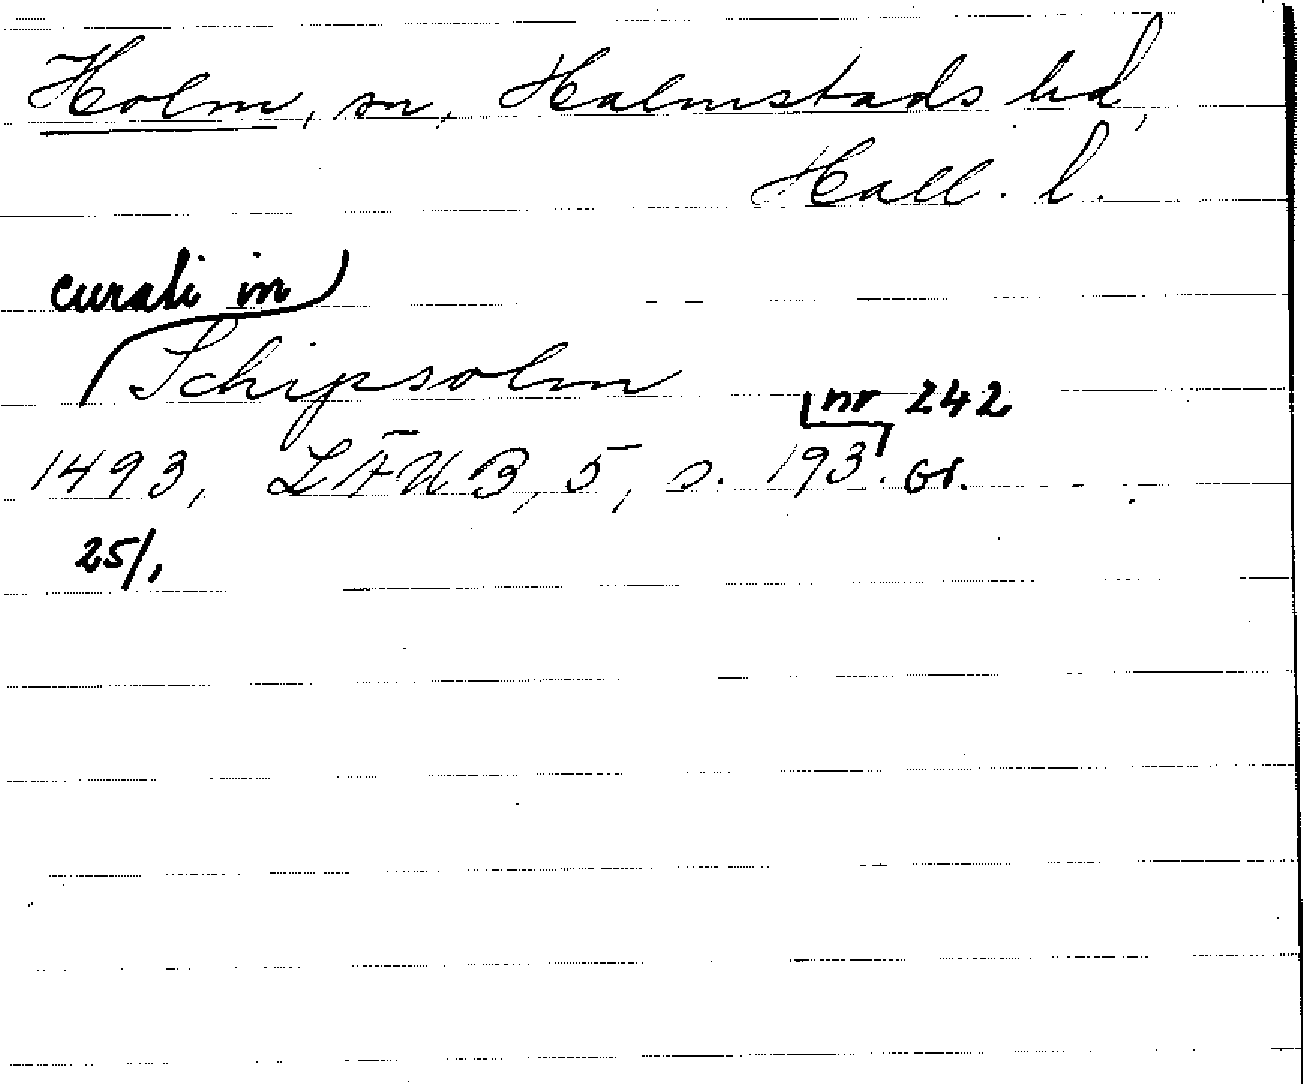 Holm, sn, Halmstads hd,
Hall. l.
curati in
Schipsolm
nr 242
1493, LÄUB, 5, s. 193. or.
25/1